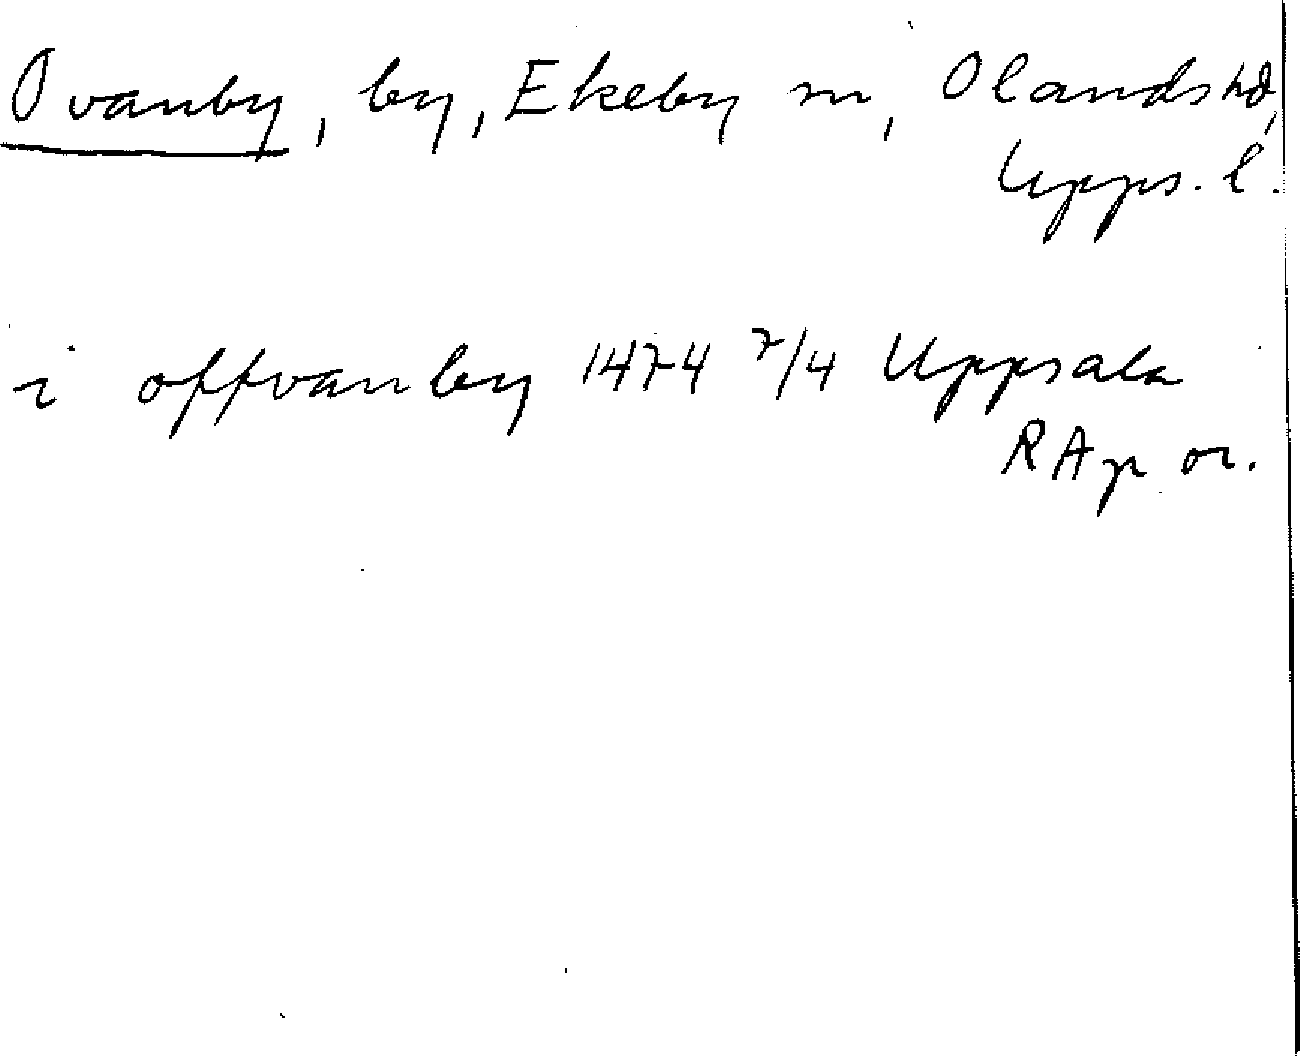 Ovanby, by, Ekeby sn, Olands hd,
Upps. l.
i offvanby 1474 7/4 Uppsala
RAp or.